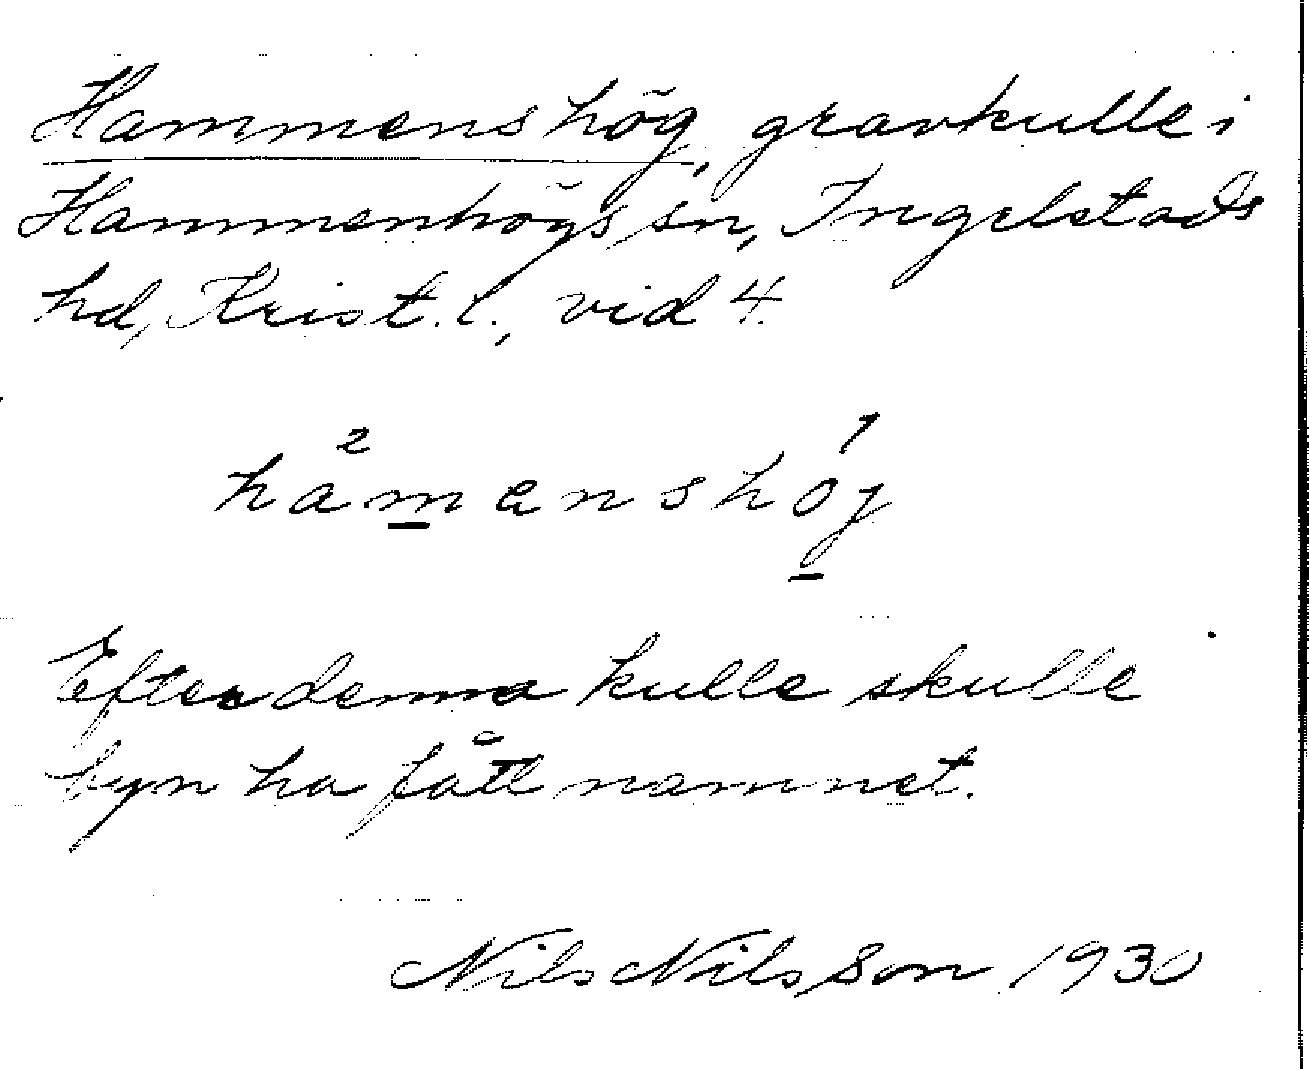 Hammens hög, gravkulle i
Hammenhögs sn, Ingelstads
hd, Krist. l., vid 4.
2 1
hamanshöj
Efter denna kulle skulle
byn ha fått namnet.
Nils Nilsson 1930